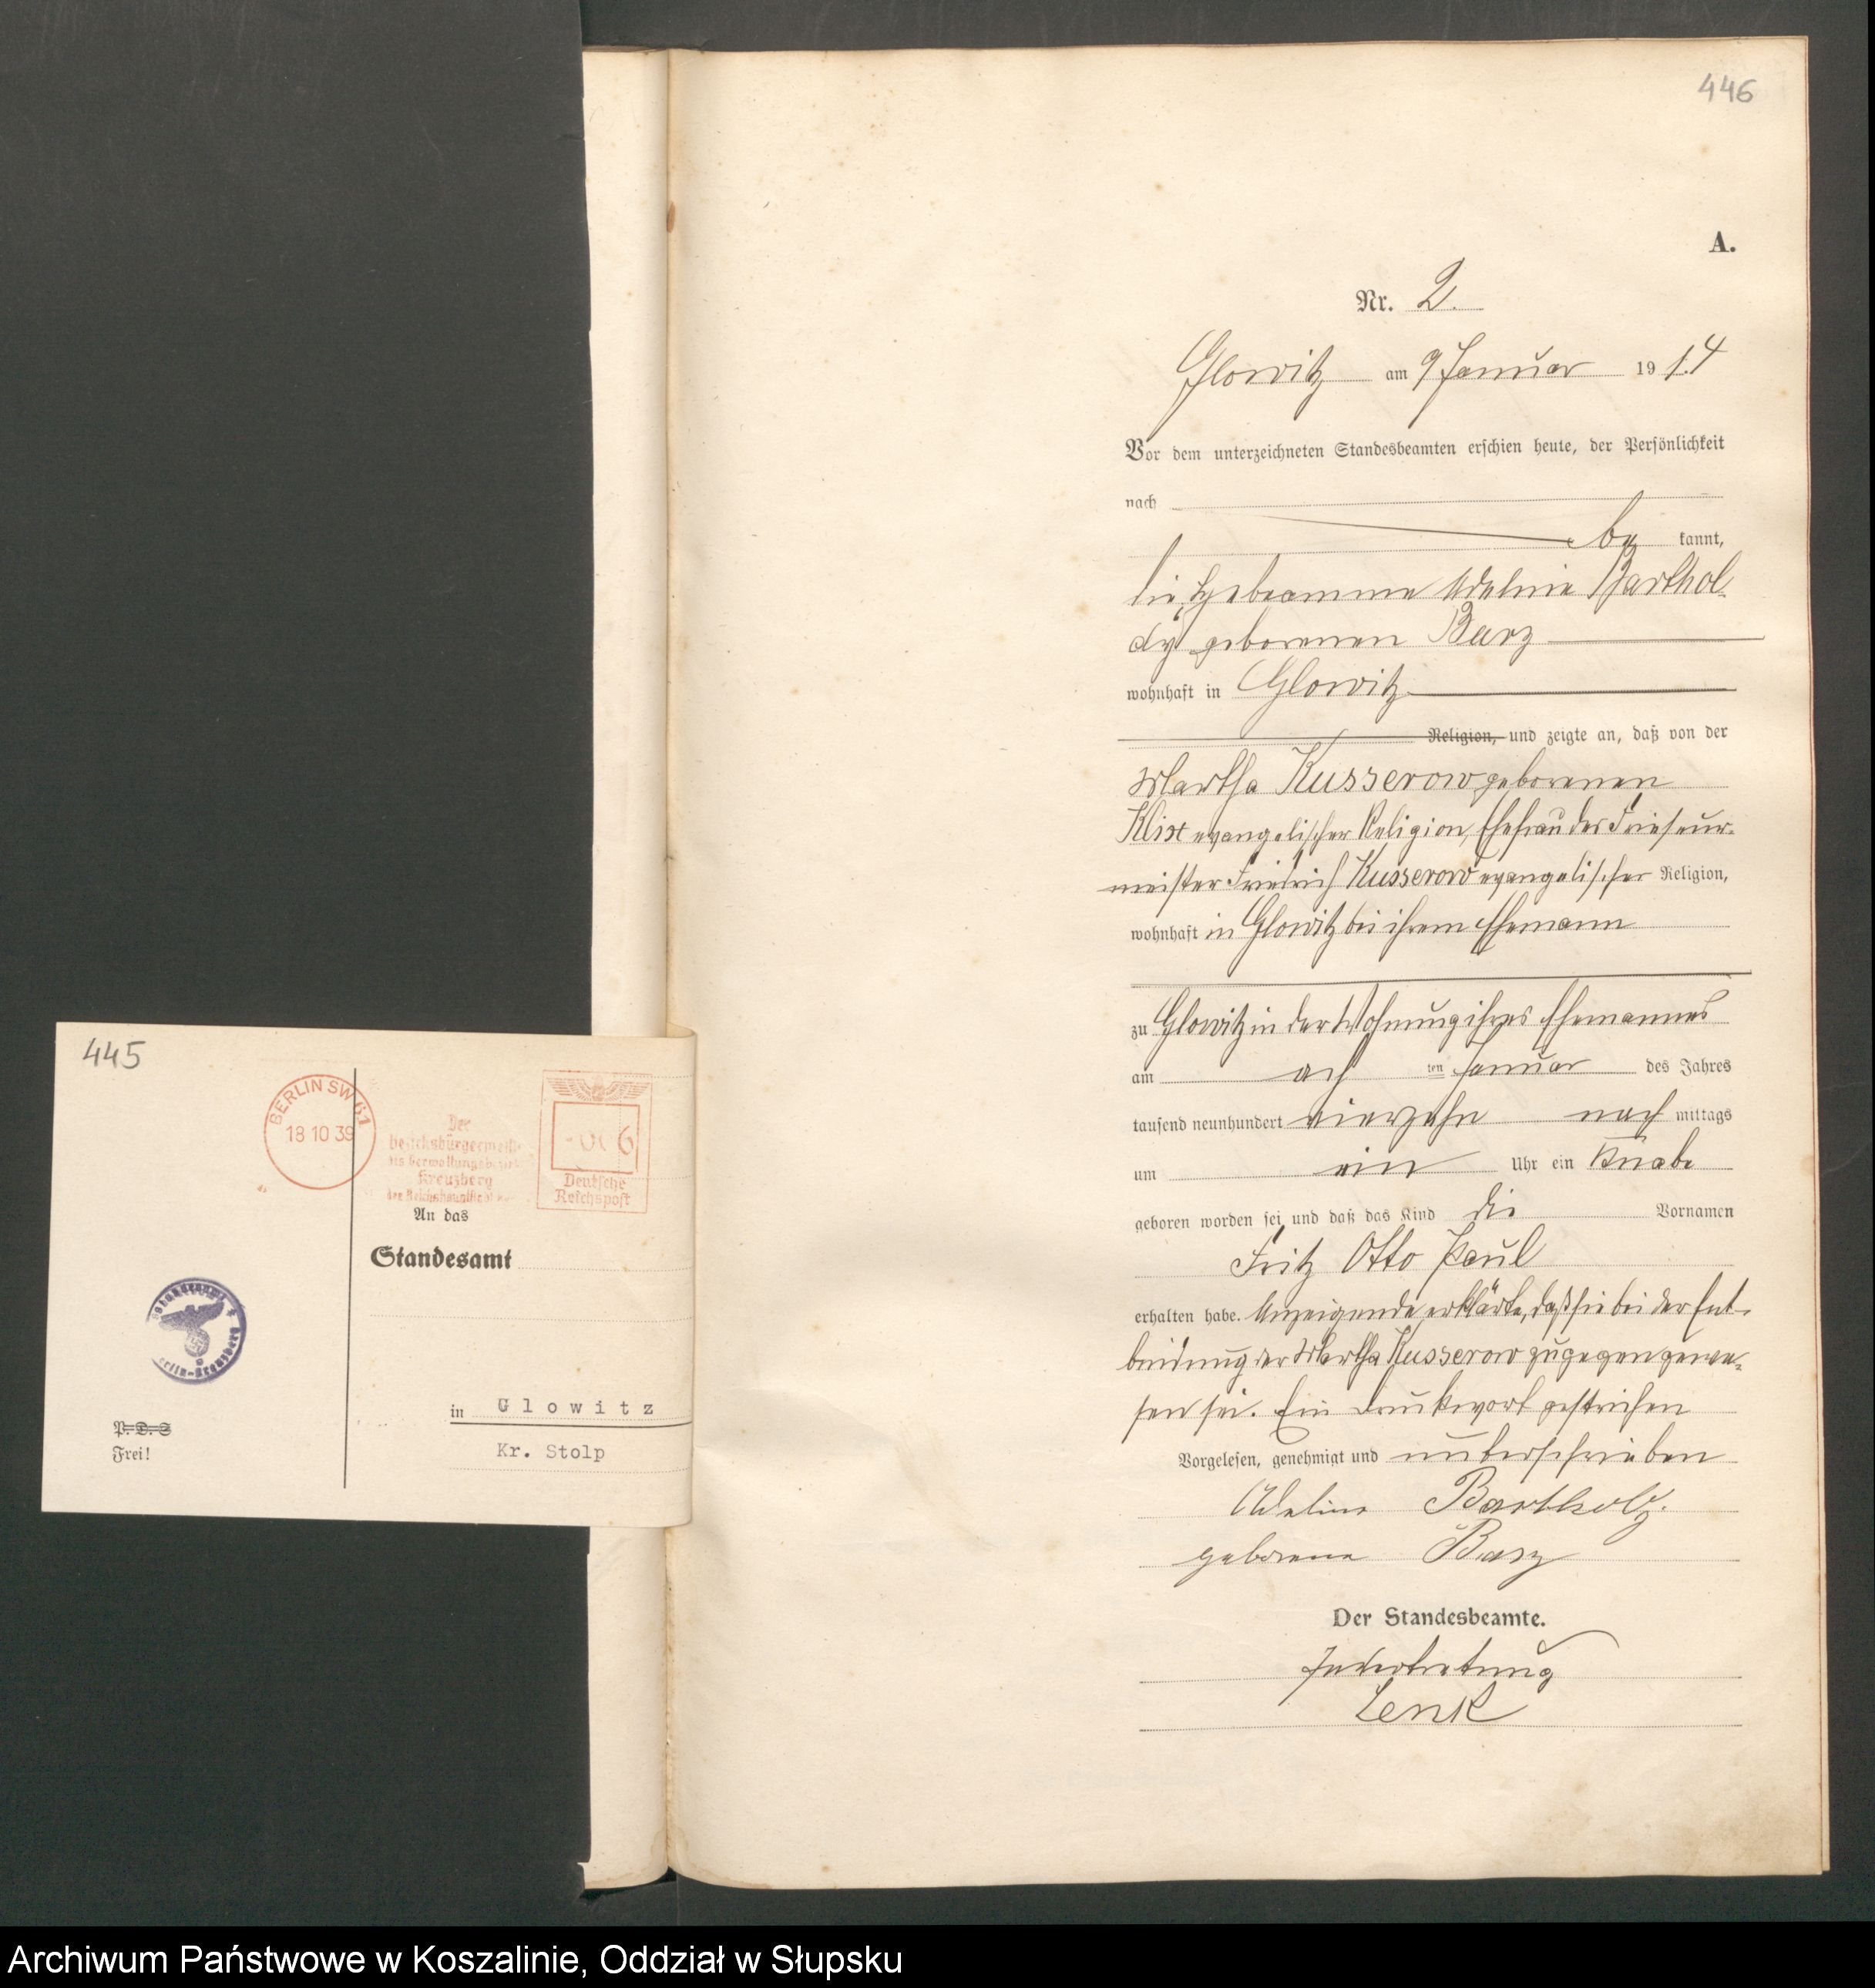 446
A.
Nr. 2.
Glowitz am 9 Januar 1914
Vor dem unterzeichneten Standesbeamten erschien heute, der Persönlichkeit
nach
be kannt,
die Hebeamme Adeline Barthol-
dy geborenen Barz
wohnhaft in Glowitz
Religion, und zeigte an, daß von der
Martha Kusserow geborenen
Klix evangelischer Religion, Ehefrau des Frieseur-
meister Friedrich Kusserow evangelischer Religion,
wohnhaft in Glowitz bei ihrem Ehemann
zu Glowitz in der Wohnung ihres Ehemannes
am ach ten Januar des Jahres
tausend neunhundert vierzehn nach mittags
um ein Uhr ein Knabe
geboren worden sei und daß das Kind die Vornamen
Fritz Otto Paul
erhalten habe. Anzeigende erklärte, daß sie bei der Ent-
bindung der Martha Kusserow zugegen gewe-
sen sei. Ein Druckwort gestrichen
Vorgelesen, genehmigt und unterschrieben
Adeline
geborene Barz
Der Standesbeamte.
In Vertretung
Lenk
445
BERLIN SW 61
18 10 39
Der
Bezirksbürgermeister
des Verwaltungsbezirks
Kreuzberg
der Reichshauptstadt
6
Deutsche
Reichspost
An das
Standesamt
in Glowitz
Kr. Stolp
P. D. S
Frei!
Archiwum Państwowe w Koszalinie, Oddział w Słupsku